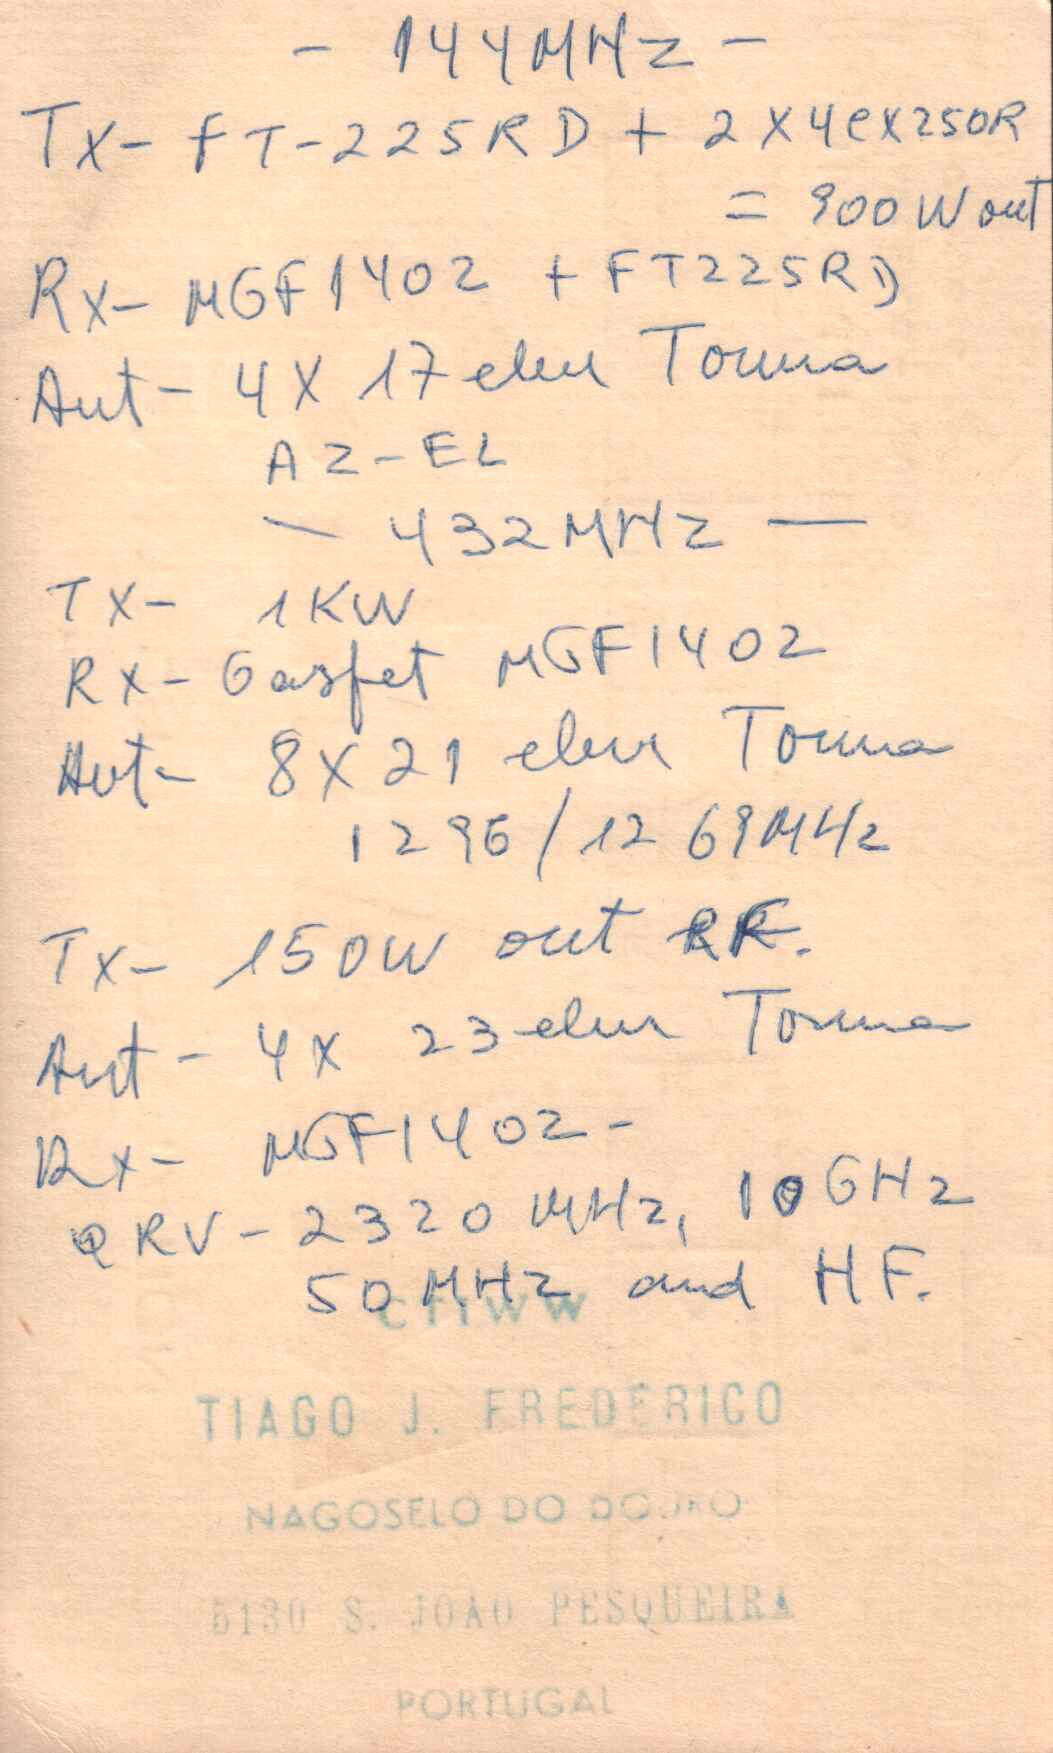 - 144MHz -
Tx- FT-225RD + 2X4CX250R
= 900W out
Rx- MGF1402 + FT225RD
Ant- 4X 17 elem Tonna
AZ-EL
- 432MHz -
TX- 1KW
RX- Gasfet MGF1402
Ant- 8X21 elem Tonna
1296/1269MHz
Tx- 150W out RF.
Ant- 4X 23 elem Tonna
Rx- MGF1402-
QRV- 2320 MHz, 10GHz
50MHz and HF.
TIAGO J. FREDERICO
NAGOSELO DO DOURO
5130 S. JOÃO PESQUEIRA
PORTUGAL